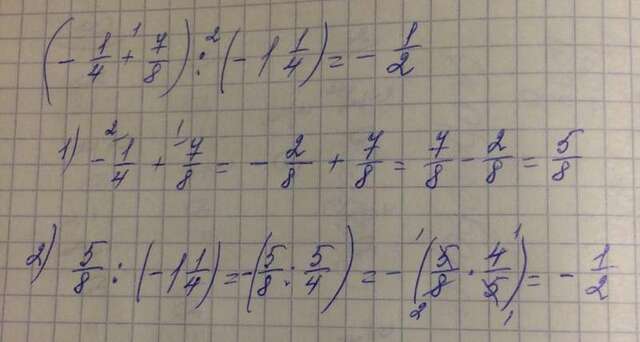 (- 1/4 +¹ 7/8) :² (- 1 1/4) = - 1/2
1) - ²1/4 + ¹7/8 = - 2/8 + 7/8 = 7/8 - 2/8 = 5/8
2) 5/8 : (- 1 1/4) = -(5/8 : 5/4) = - (¹5/8₂ · 4¹/5₁) = - 1/2